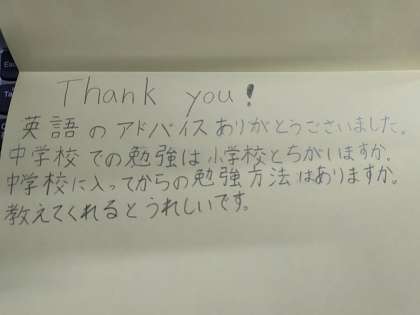 Thank you!
英語のアドバイスありがとうございました。
中学校での勉強は小学校とちがいますか。
中学校に入ってからの勉強方法はありますか。
教えてくれるとうれしいです。